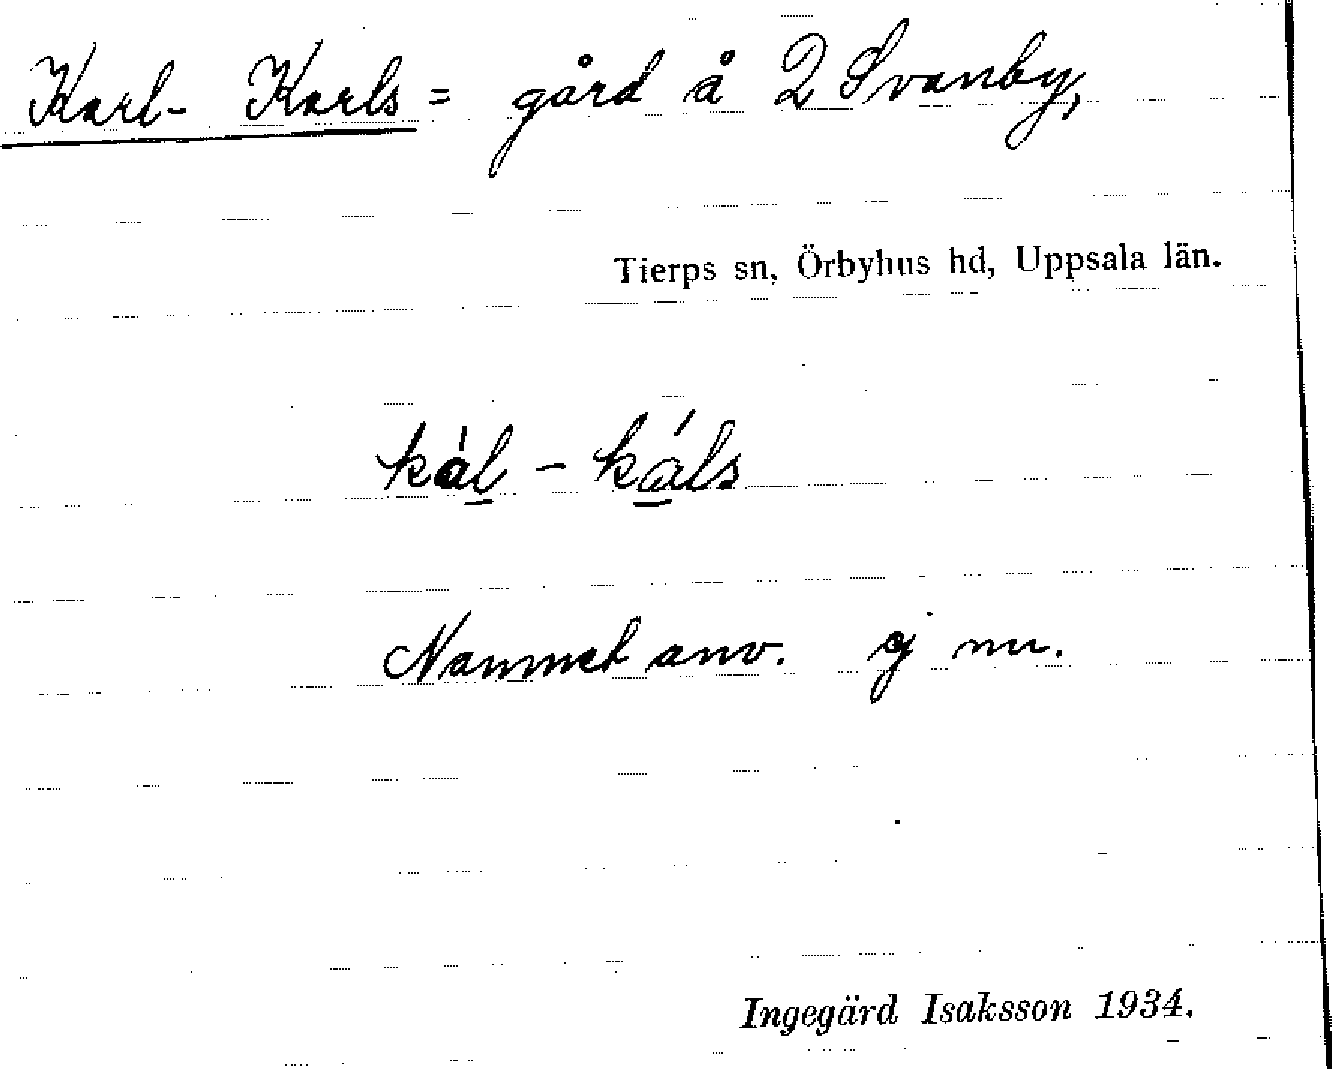 Karl- Karls = gård å 2 Svanby,
Tierps sn, Örbyhus hd, Uppsala län.
kàl - káls
Namnet anv. ej nu.
Ingegärd Isaksson 1934.